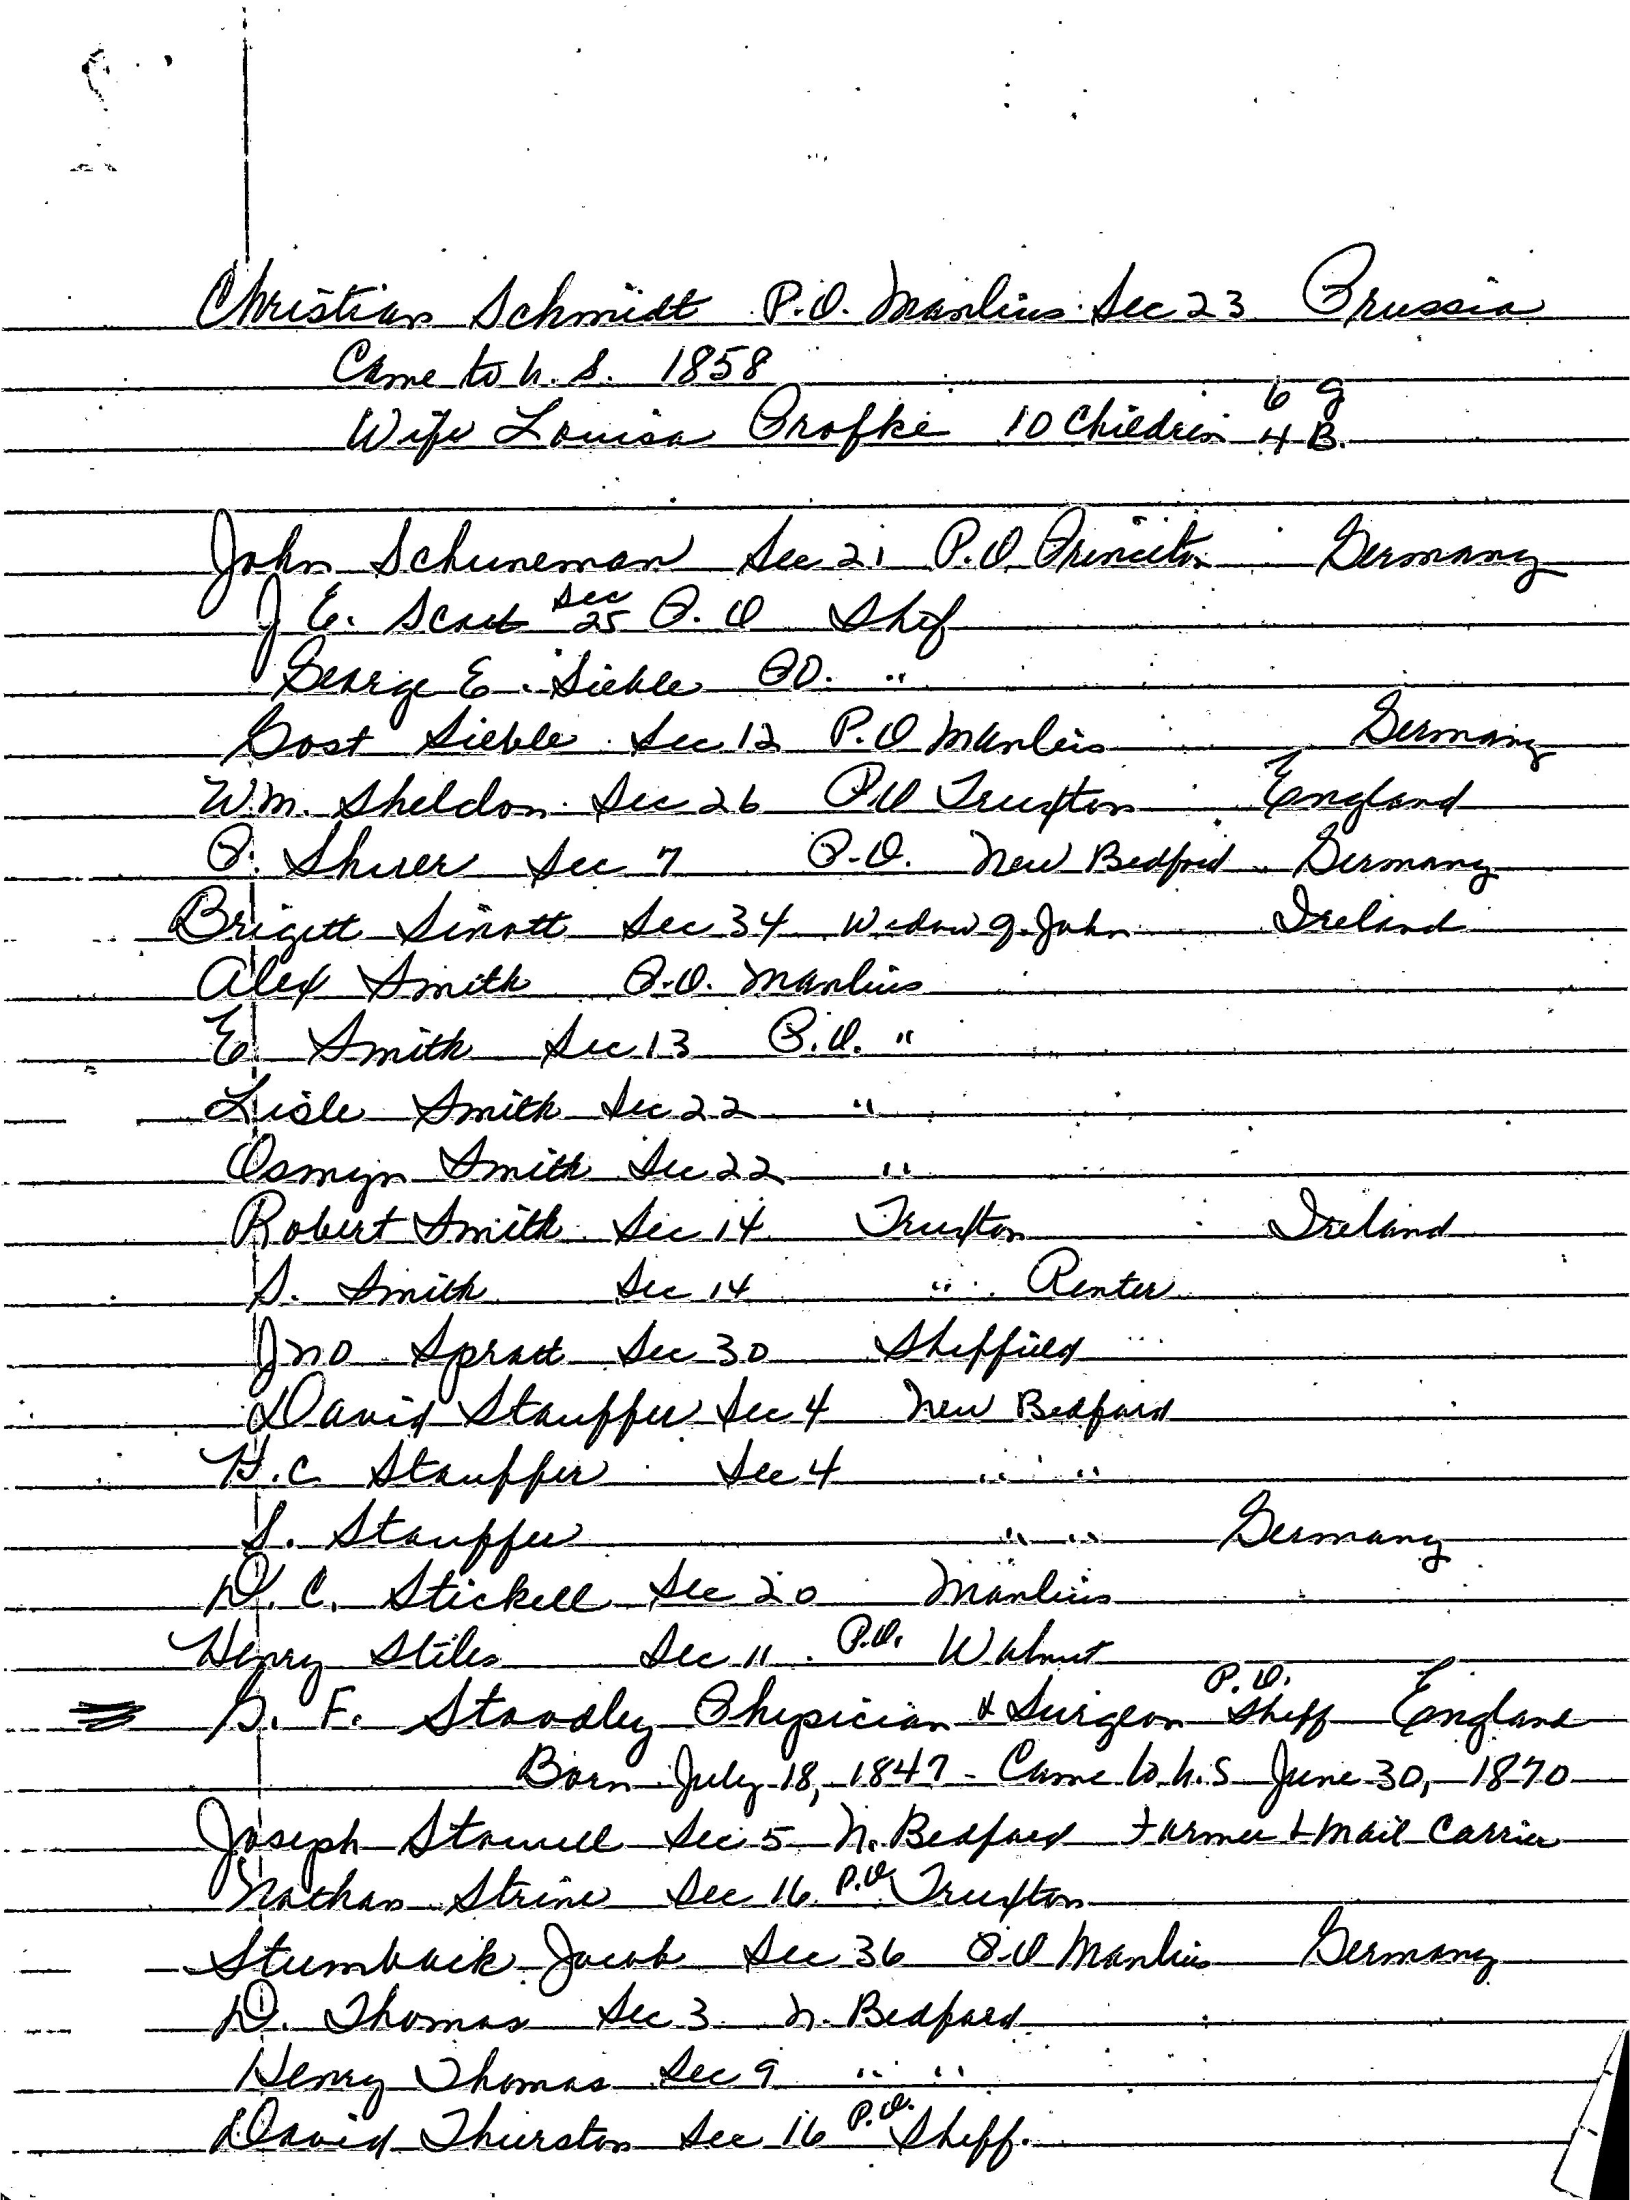 Christian Schmidt P.O. Manlius Sec 23 Prussia
Came to U.S. 1858
Wife Louisa Profke 10 Children 6 g 4 B.
John Schuneman Sec 21 P.O. Princeton Germany
J E. Scott Sec 25 P.O Shef
George E. Sieble PO. "
Gost Sieble Sec 12 P.O Manlius Germany
Wm. Sheldon Sec 26 PO Truxton England
P. Shurer Sec 7 P.O. New Bedford Germany
Brigett Sinott Sec 34 Widow of John Ireland
Alex Smith P.O. Manlius
E. Smith Sec 13 P.O. "
Lisle Smith Sec 22 "
Osmyn Smith Sec 22 "
Robert Smith Sec 14 Truxton Ireland
S. Smith Sec 14 " Renter
Jno Spratt Sec 30 Sheffield
David Stauffer Sec 4 New Bedford
H.C. Stauffer Sec 4 " "
S. Stauffer " " Germany
D. C. Stickell Sec 20 Manlius
Henry Stiles Sec 11 P.O. Walnut
F. Stoodley Physician & Surgeon P.O. Sheff England
Born July 18, 1847 - Came to U.S June 30, 1870
Joseph Stowell Sec 5 N. Bedford Farmer & Mail Carrier
Nathan Strine Sec 16 P.O Truxton
Stumbaik Jacob Sec 36 P.O Manlius Germany
D. Thomas Sec 3 N. Bedford
Henry Thomas Sec 9 " "
David Thurston Sec 16 P.O. Sheff.